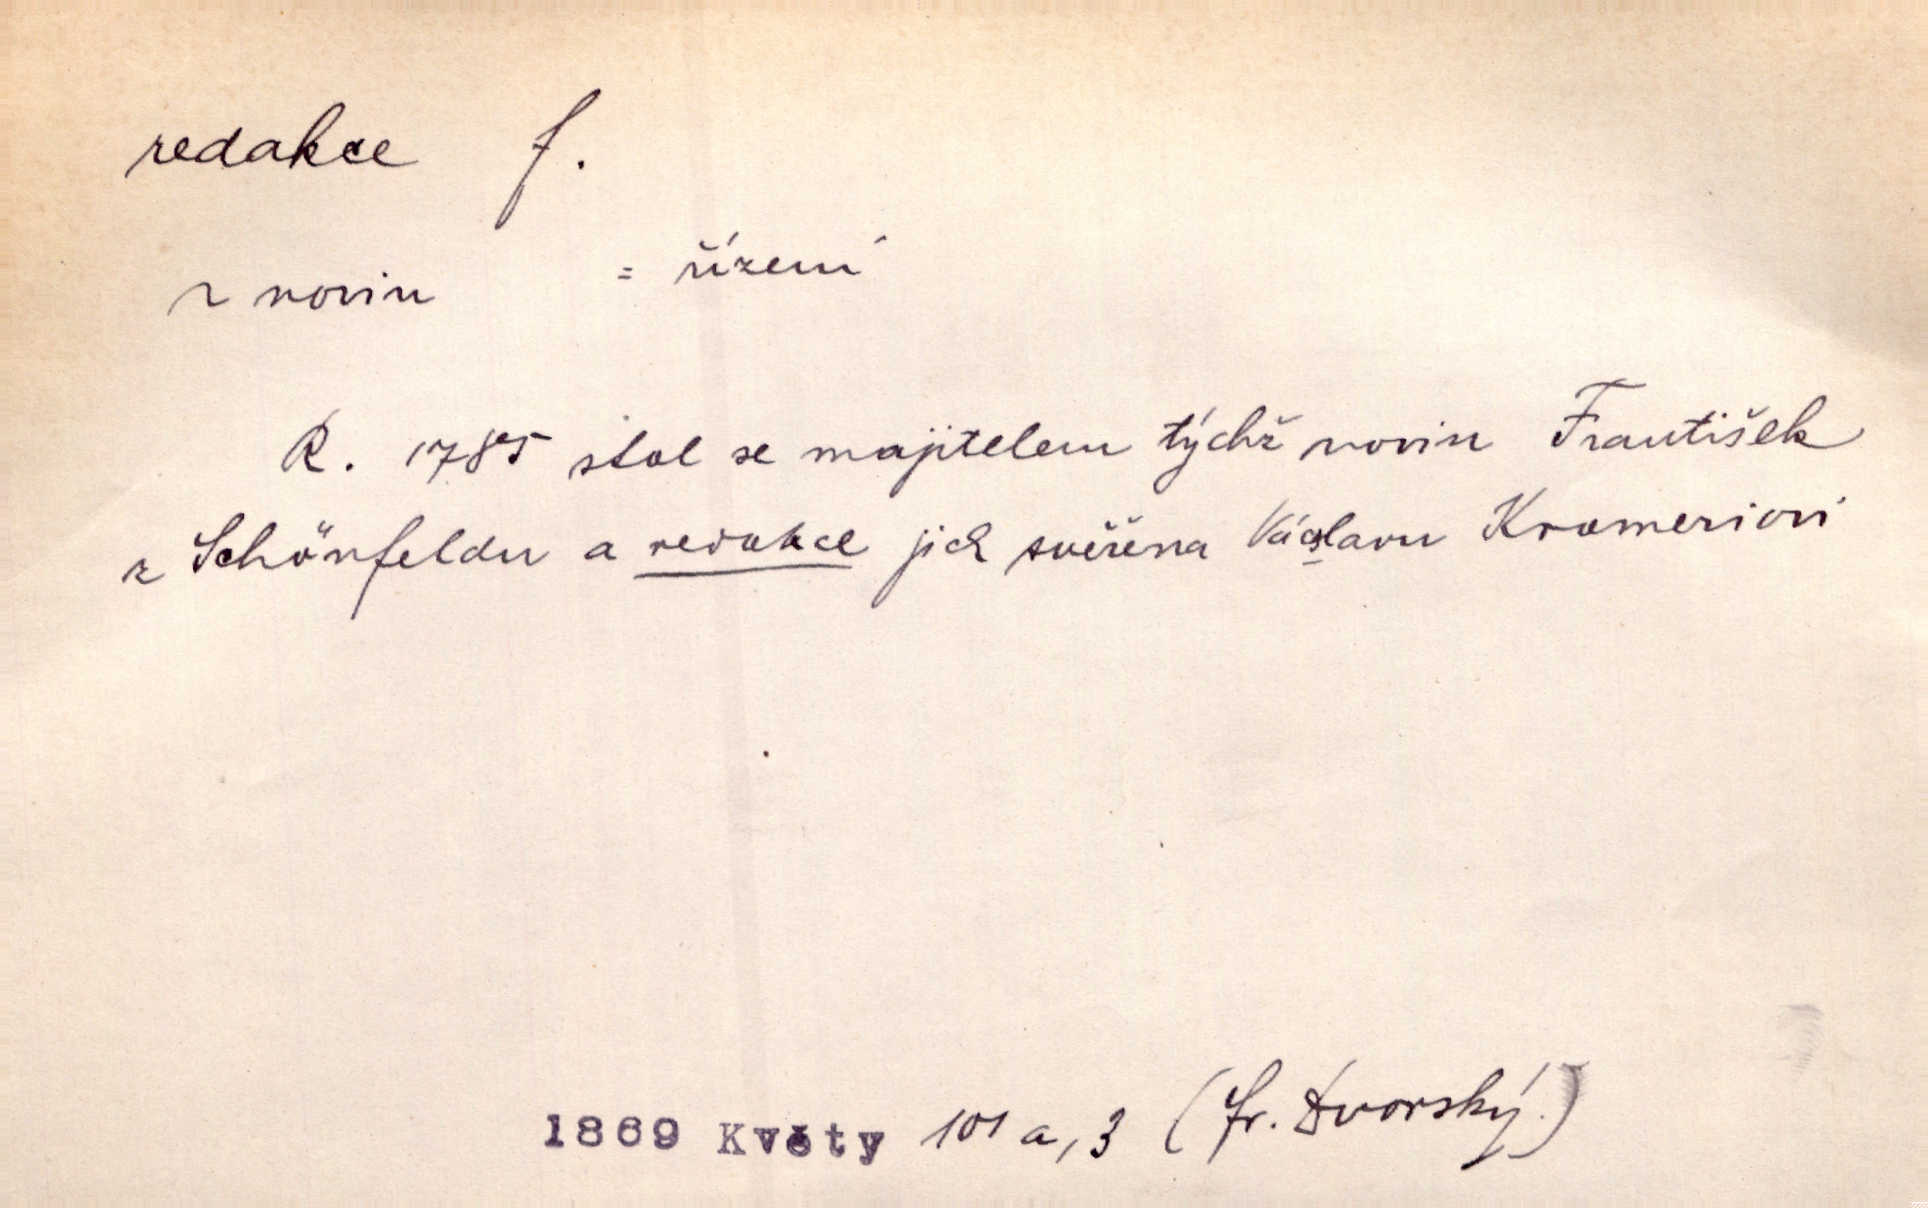 redakce f.
~ novin = řízení
R. 1785 stal se majitelem týchž novin František
z Schönfeldu a redakce jich svěřena Václavu Krameriovi
1869 Květy 101 a, 3 (Fr. Dvorský.)